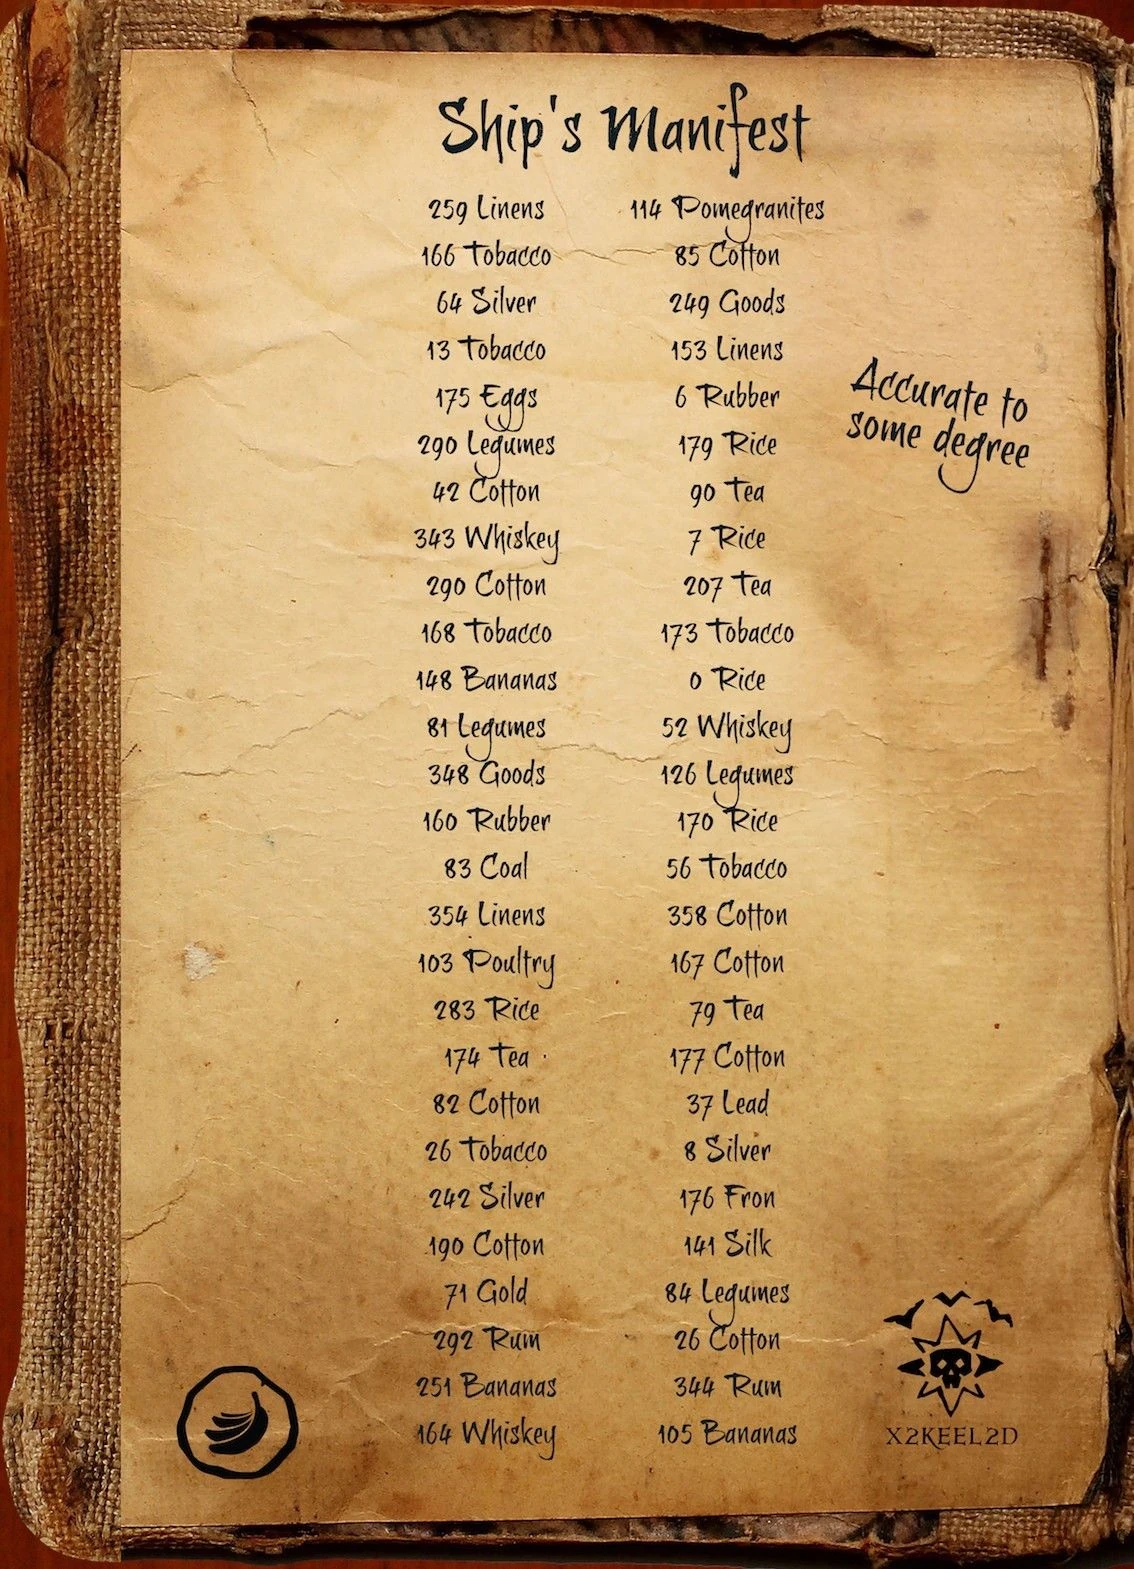 Ship's Manifest
259 Linens
166 Tobacco
64 Silver
13 Tobacco
175 Eggs
290 Legumes
42 Cotton
343 Whiskey
290 Cotton
168 Tobacco
148 Bananas
81 Legumes
348 Goods
160 Rubber
83 Coal
354 Linens
103 Poultry
283 Rice
174 Tea
82 Cotton
26 Tobacco
242 Silver
190 Cotton
71 Gold
292 Rum
251 Bananas
164 Whiskey
114 Pomegranites
85 Cotton
249 Goods
153 Linens
6 Rubber
179 Rice
90 Tea
7 Rice
207 Tea
173 Tobacco
0 Rice
52 Whiskey
126 Legumes
170 Rice
56 Tobacco
358 Cotton
167 Cotton
79 Tea
177 Cotton
37 Lead
8 Silver
176 Fron
141 Silk
84 Legumes
26 Cotton
344 Rum
105 Bananas
Accurate to
some degree
X2KEEL2D